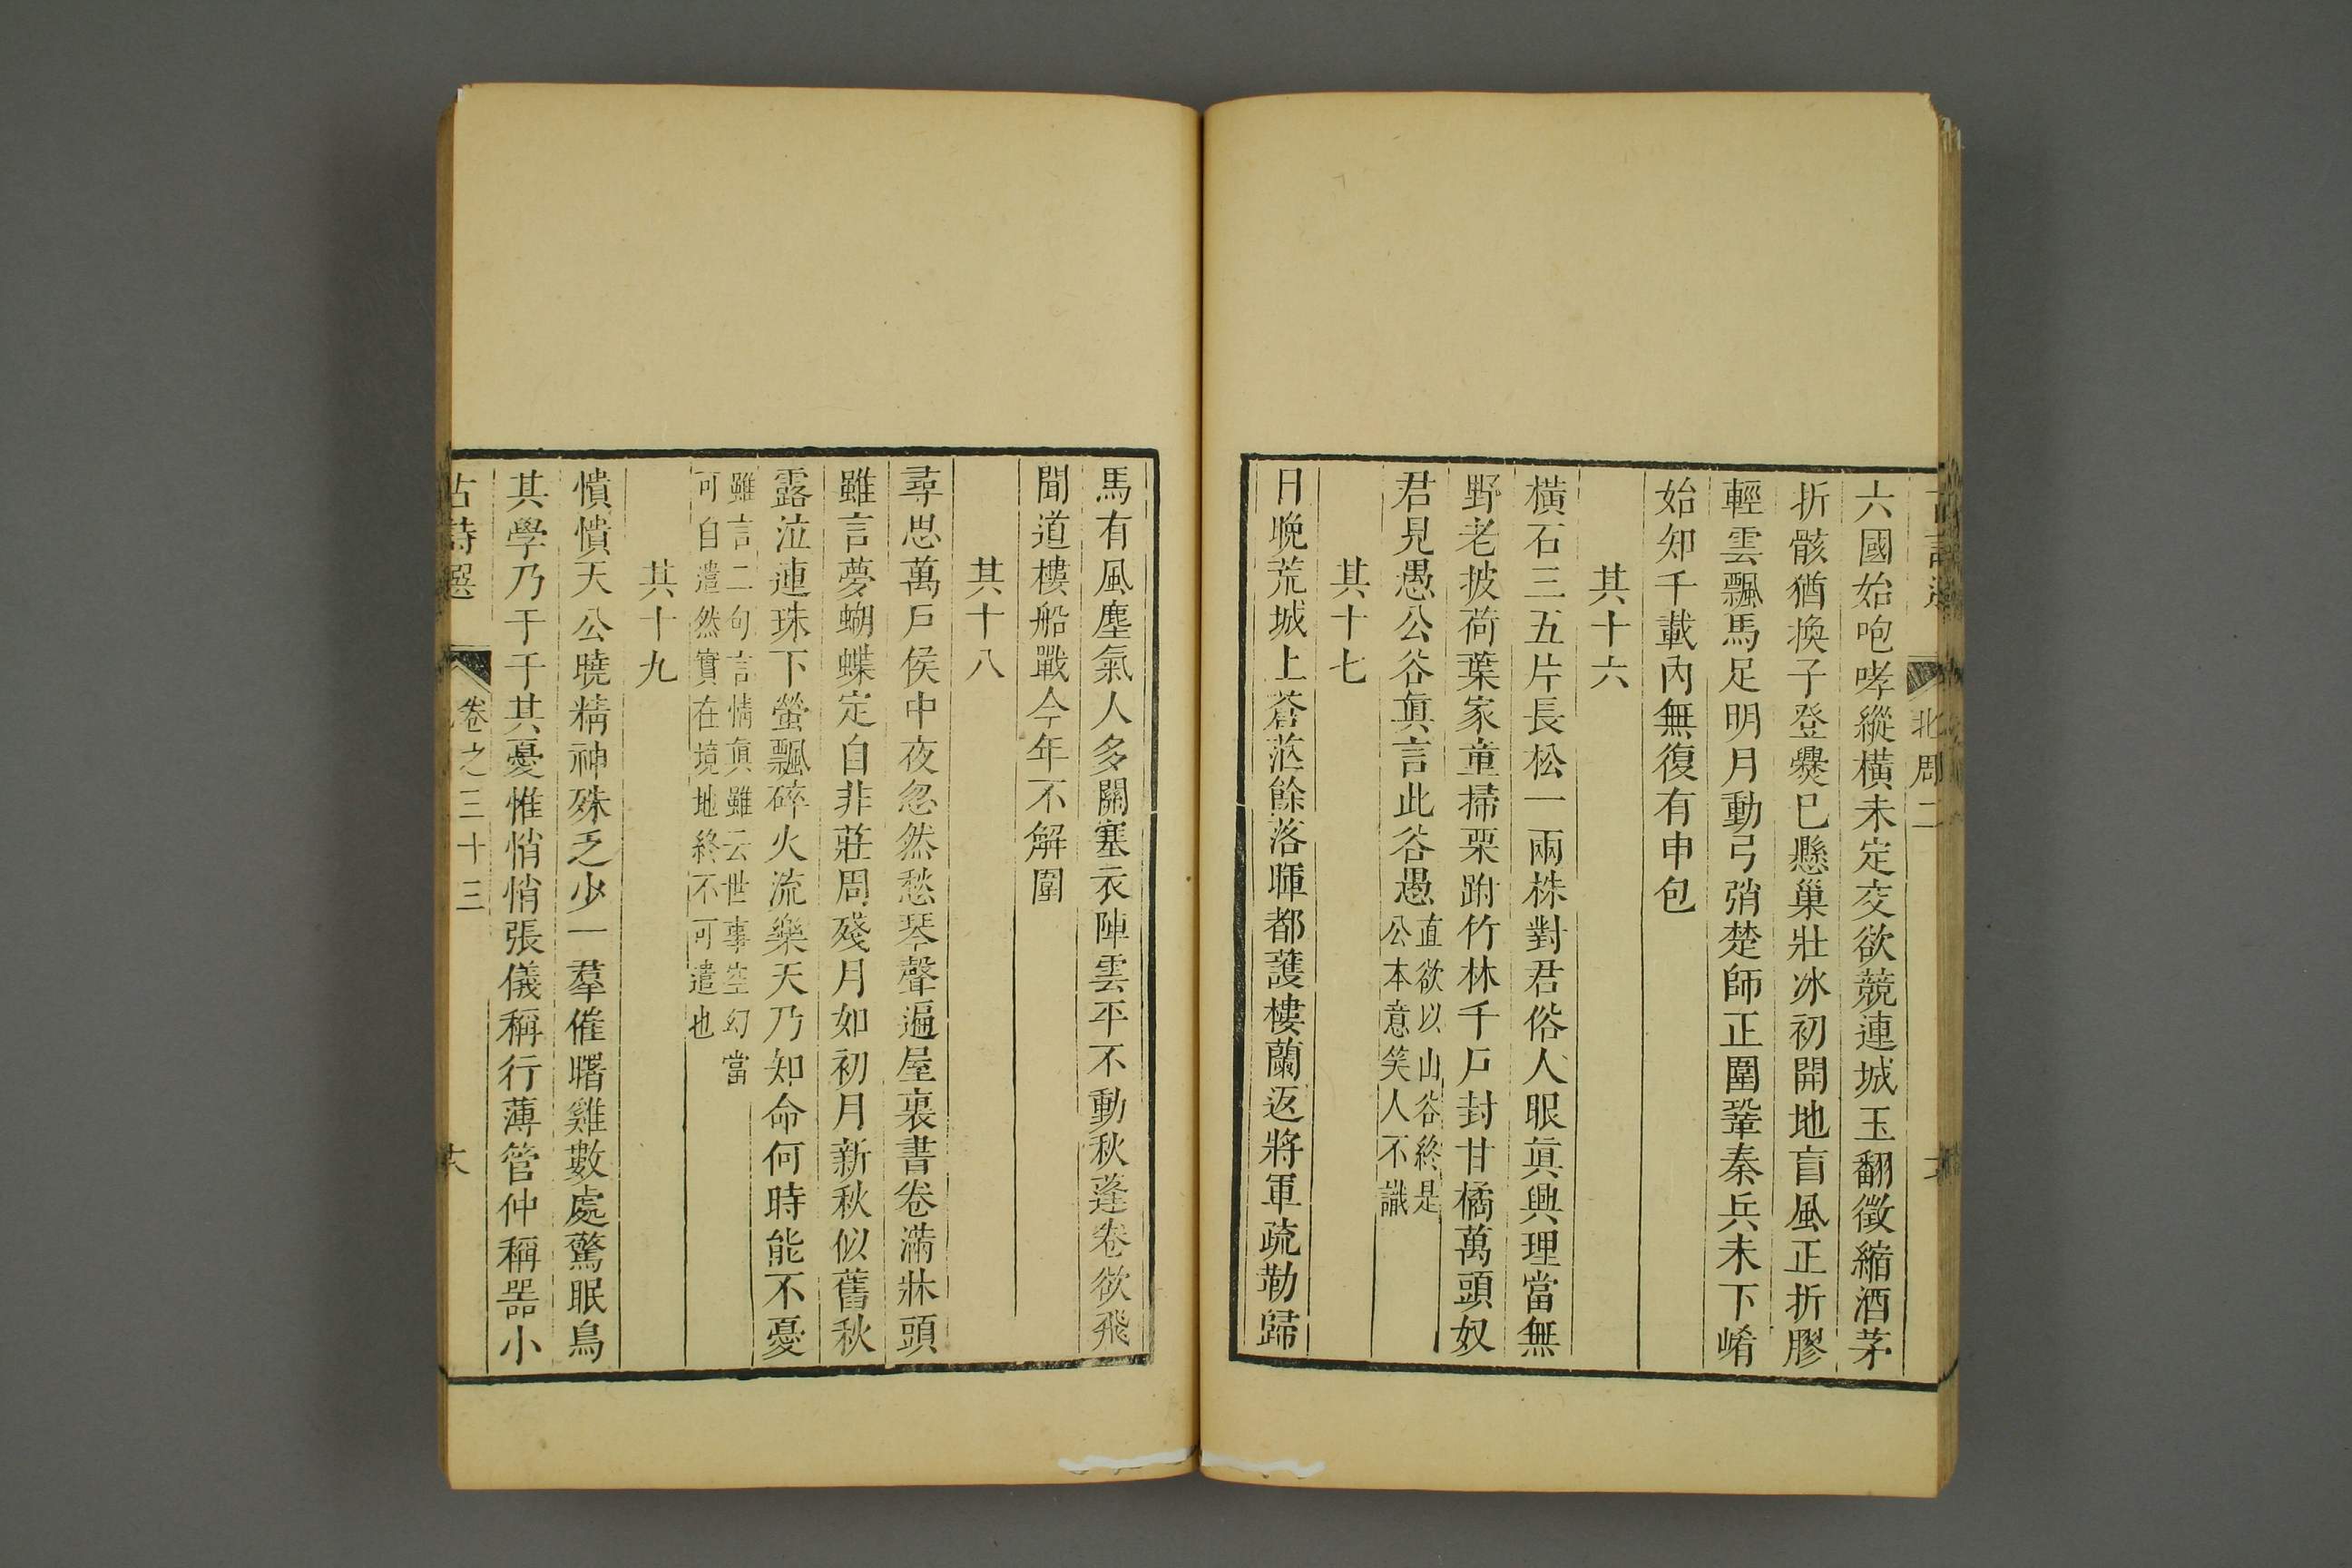 古詩選 北周二
六國始咆哮縱橫未定交欲競連城玉翻徵縮酒茅
折骸猶換子登爨巳懸巢壯冰初開地盲風正折膠
輕雲飄馬足明月動弓弰楚師正圍鞏秦兵未下崤
始知千載內無復有申包
其十六
橫石三五片長松一兩株對君俗人眼眞興理當無
野老披荷葉家童掃栗跗竹林千戶封甘橘萬頭奴
君見愚公谷眞言此谷愚直欲以山谷終是
公本意笑人不識
其十七
日晚荒城上蒼茫餘落暉都護樓蘭返將軍疏勒歸
馬有風塵氣人多關塞衣陣雲平不動秋蓬卷欲飛
聞道樓船戰今年不解圍
其十八
尋思萬戶侯中夜忽然愁琴聲遍屋裏書卷滿牀頭
雖言夢蝴蝶定自非莊周殘月如初月新秋似舊秋
露泣連珠下螢飄碎火流樂天乃知命何時能不憂
雖言二句言情眞雖云世事空幻當
可自遣然實在境地終不可遣也
其十九
憒憒天公曉精神殊乏少一羣催曙雞數處驚眠鳥
其學乃于于其憂惟悄悄張儀稱行薄管仲稱器小
古詩選 卷之三十三 六